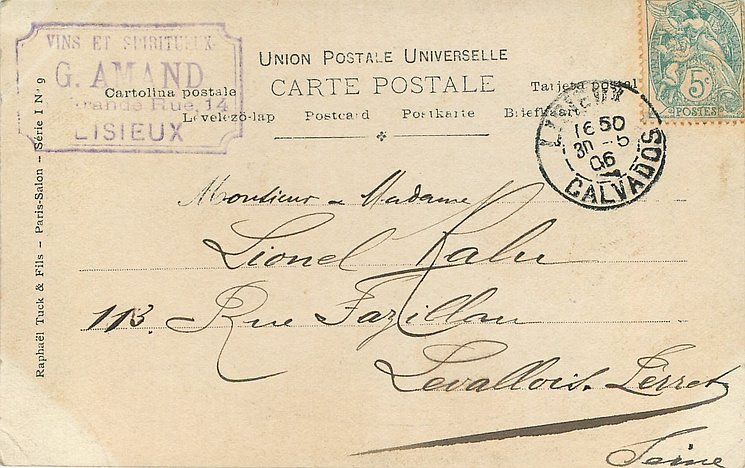 VINS ET SPIRITUEUX
G. AMAND
Grande Rue, 14
LISIEUX
UNION POSTALE UNIVERSELLE
CARTE POSTALE
Cartolina postale Tarjeta postal
Levelezö-lap Postcard Postkarte Briefkaart
5c
POSTES
LISIEUX
16 50
30 - 5
06
CALVADOS
Monsieur & Madame
Lionel Kahn
113. Rue Fazillau
Levallois. Perret
Seine
Raphaël Tuck & Fils — Paris-Salon — Série I Nº 9